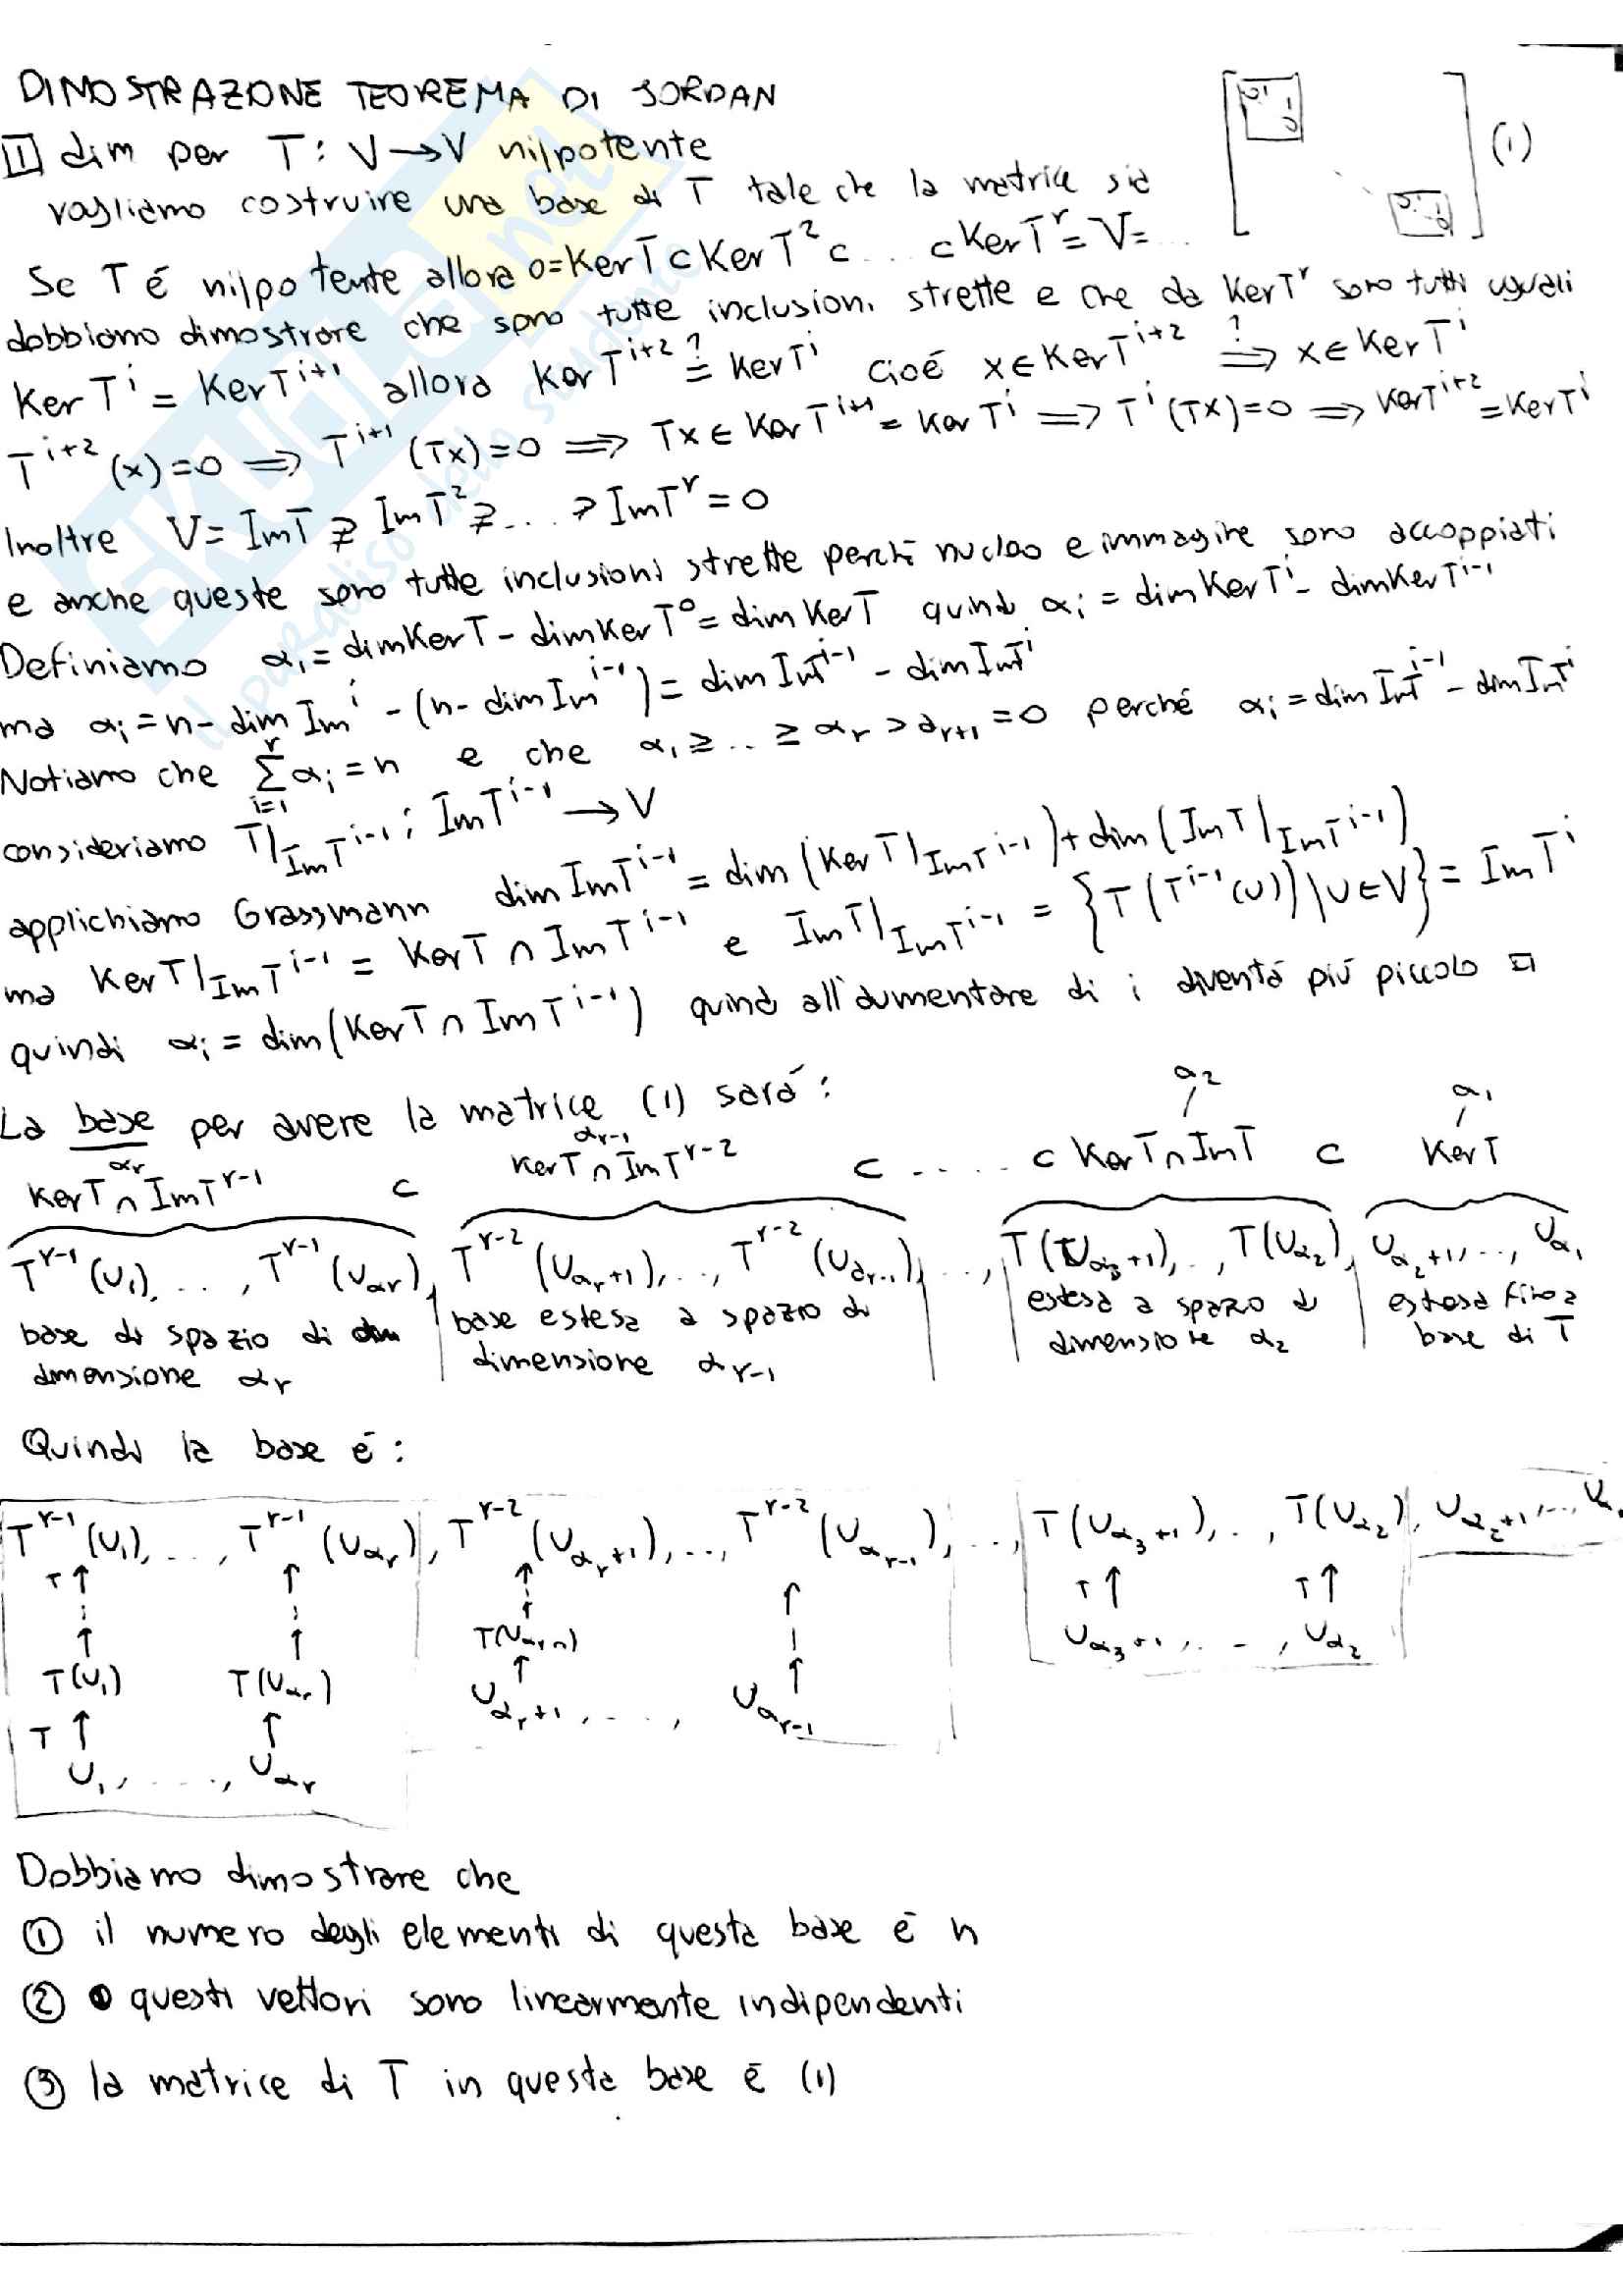 DIMOSTRAZIONE TEOREMA DI JORDAN
1 dim per T: V→V nilpotente
vogliamo costruire una base di T tale che la matrice sia (1)
Se T é nilpotente allora 0=KerT⊂KerT²⊂...⊂KerTʳ=V=...
dobbiamo dimostrare che sono tutte inclusioni strette e che da KerTʳ sono tutti uguali
KerTⁱ = KerTⁱ⁺¹ allora KerTⁱ⁺² ?= KerTⁱ cioé x∈KerTⁱ⁺² ?⟹ x∈KerTⁱ
Tⁱ⁺²(x)=0 ⟹ Tⁱ⁺¹(Tx)=0 ⟹ Tx∈KerTⁱ⁺¹=KerTⁱ ⟹ Tⁱ(Tx)=0 ⟹ KerTⁱ⁺²=KerTⁱ
Inoltre V=ImT⊋ImT²⊋...⊋ImTʳ=0
e anche queste sono tutte inclusioni strette perché nucleo e immagine sono accoppiati
Definiamo α₁=dimKerT-dimKerT⁰=dimKerT quindi αᵢ=dimKerTⁱ-dimKerTⁱ⁻¹
ma αᵢ=n-dimImⁱ-(n-dimImⁱ⁻¹)=dimImTⁱ⁻¹-dimImTⁱ
Notiamo che Σᵢ₌₁ʳ αᵢ=n e che α₁≥..≥αᵣ>aᵣ₊₁=0 perché αᵢ=dimImTⁱ⁻¹-dimImTⁱ
consideriamo T|ImTⁱ⁻¹: ImTⁱ⁻¹→V
applichiamo Grassmann dimImTⁱ⁻¹=dim(KerT|ImTⁱ⁻¹)+dim(ImT|ImTⁱ⁻¹)
ma KerT|ImTⁱ⁻¹=KerT∩ImTⁱ⁻¹ e ImT|ImTⁱ⁻¹={T(Tⁱ⁻¹(υ))|υ∈V}=ImTⁱ
quindi αᵢ=dim(KerT∩ImTⁱ⁻¹) quindi all'aumentare di i diventa piú piccolo □
La base per avere la matrice (1) sará:
αᵣ αᵣ₋₁ a₂ a₁
KerT∩ImTʳ⁻¹ ⊂ KerT∩ImTʳ⁻² ⊂ ..... ⊂ KerT∩ImT ⊂ KerT
Tʳ⁻¹(υ₁),...,Tʳ⁻¹(υαᵣ), Tʳ⁻²(υαᵣ+1),...,Tʳ⁻²(υαᵣ₋₁),...,T(υα₃+1),..,T(υα₂), υα₂+1,..,υα₁
base di spazio di dimensione αᵣ
base estesa a spazio di dimensione αᵣ₋₁
estesa a spazio di dimensione α₂
estesa fino a base di T
Quindi la base é:
Tʳ⁻¹(υ₁),...,Tʳ⁻¹(υαᵣ), Tʳ⁻²(υαᵣ+1),...,Tʳ⁻²(υαᵣ₋₁),...,T(υα₃+1),..,T(υα₂), υα₂+1,...,υα₁
T↑ ↑ ↑ ↑ T↑ T↑
T(υαᵣ+1) υα₃+1,..-,υα₂
T(υ₁) T(υαᵣ) υαᵣ+1,...,υαᵣ₋₁
T↑ ↑
υ₁,....,υαᵣ
Dobbiamo dimostrare che
① il numero degli elementi di questa base é n
② questi vettori sono linearmente indipendenti
③ la matrice di T in questa base é (1)
SKUOLA.net
il paradiso dello studente